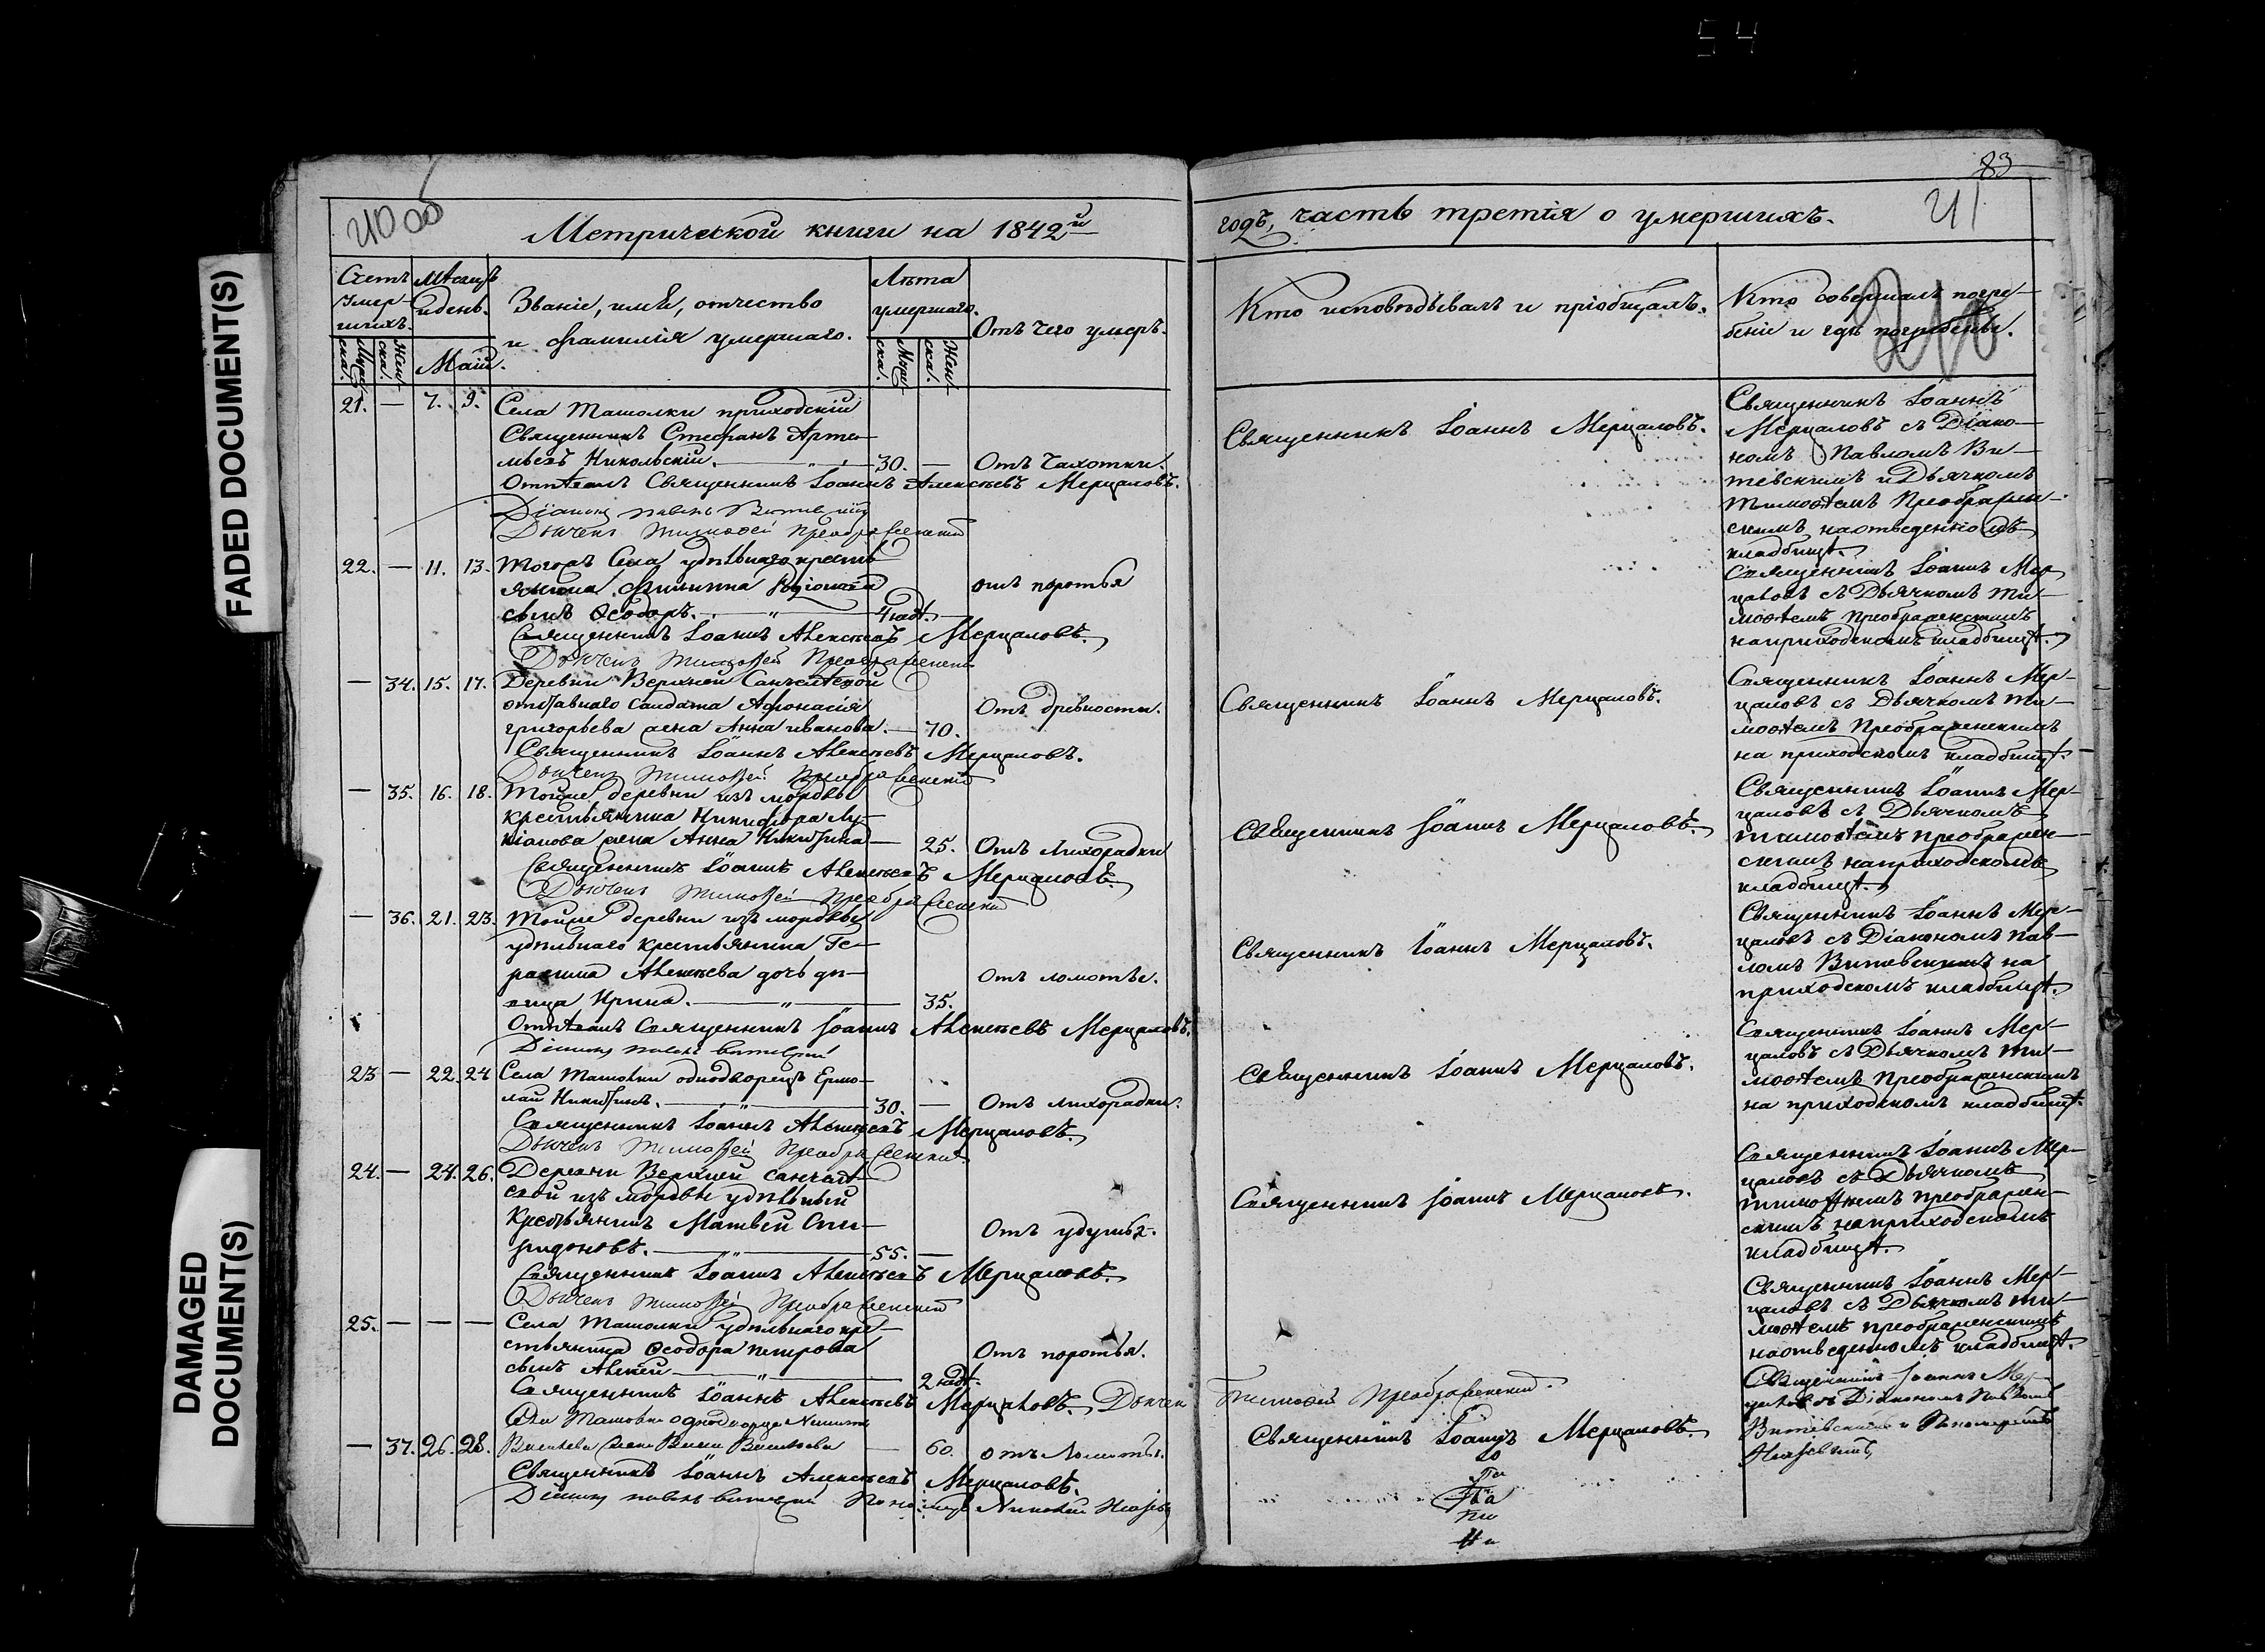 54
83
40 об
41
Метрической книги на 1842й
годъ, часть третія о умершихъ.
Счетъ умер-
шихъ.
Мужеска.
Женска.
Мѣсяцъ
и день.
Маій.
Званіе, имя, отчество
и фамилія умершаго.
Лѣта
умершаго.
Мужеска.
Женска.
Отъ чего умеръ.
Кто исповѣдывалъ и пріобщалъ.
Кто совершалъ погре-
беніе и гдѣ погребены.
21. — 7. 9. Села Ташолки приходскій
Священникъ Стефанъ Арте-
мьевъ Никольскій. — „ — 30. — Отъ Чахотки.
Отпѣвалъ Священникъ Іоаннъ Алексѣевъ Мерцаловъ.
Діаконъ Павелъ Витевскій
Дьячекъ Тимофей Преображенский
Священникъ Іоаннъ Мерцаловъ.
Священникъ Іоаннъ
Мерцаловъ съ Діако-
номъ Павломъ Ви-
тевскимъ и Дьячкомъ
Тимоѳеемъ Преображен-
скимъ на отведенномъ
кладбищѣ.
22. — 11. 13. Тогожъ Села удѣльнаго кресть-
янина Филиппа Родіонова
сынъ Ѳеодоръ. — „ — 4 над. — отъ поротья
Священникъ Іоаннъ Алексѣевъ Мерцаловъ.
Дьячекъ Тимофей Преображенский
Священникъ Іоаннъ Мер-
цаловъ съ Дьячкомъ Ти-
моѳеемъ Преображенскимъ
на приходскомъ кладбищѣ.
— 34. 15. 17. Деревни Верхней Санчелѣевой
отставнаго Солдата Афонасія
Григорьева жена Анна Иванова. — 70. Отъ древности.
Священникъ Іоаннъ Алексѣевъ Мерцаловъ.
Дьячекъ Тимофей Преображенский
Священникъ Іоаннъ Мерцаловъ.
Священникъ Іоаннъ Мер-
цаловъ съ Дьячкомъ Ти-
моѳеемъ Преображенскимъ
на приходскомъ кладбищѣ.
— 35. 16. 18. Тойже деревни изъ мордвы
крестьянина Никифора Лу-
кіанова жена Анна Никитина — 25. Отъ Лихорадки
Священникъ Іоаннъ Алексѣевъ Мерцаловъ.
Дьячекъ Тимофей Преображенский
Священникъ Іоаннъ Мерцаловъ.
Священникъ Іоаннъ Мер-
цаловъ съ Дьячкомъ
Тимоѳеемъ Преображен-
скимъ на приходскомъ
кладбищѣ.
— 36. 21. 23. Тойже деревни изъ мордвы
удѣльнаго крестьянина Ге-
расима Алексѣева дочь дѣ-
вица Ирина. — „ — 35. Отъ ломотье.
Отпѣвалъ Священникъ Іоаннъ Алексѣевъ Мерцаловъ.
Діаконъ Павелъ Витевский
Священникъ Іоаннъ Мерцаловъ.
Священникъ Іоаннъ Мер-
цаловъ съ Діакономъ Пав-
ломъ Витевскимъ на
приходскомъ кладбищѣ.
23 — 22. 24 Села Ташолки однодворецъ Ермо-
лай Никитинъ. — „ — 30. — Отъ лихорадки.
Священникъ Іоаннъ Алексѣевъ Мерцаловъ.
Дьячекъ Тимофей Преображенский
Священникъ Іоаннъ Мерцаловъ.
Священникъ Іоаннъ Мер-
цаловъ съ Дьячкомъ Ти-
моѳеемъ Преображенскимъ
на приходскомъ кладбищѣ.
24. — 24. 26. Деревни Верхней Санчелѣ-
евой изъ мордвы удѣльный
Крестьянинъ Матвей Спи-
ридоновъ. — „ — 55. — Отъ удушья.
Священникъ Іоаннъ Алексѣевъ Мерцаловъ.
Дьячекъ Тимофей Преображенский
Священникъ Іоаннъ Мерцаловъ.
Священникъ Іоаннъ Мер-
цаловъ съ Дьячкомъ
Тимоѳеемъ Преображен-
скимъ на приходскомъ
кладбищѣ.
25. — — — Села Ташолки удѣльнаго кре-
стьянина Ѳеодора Петрова
сынъ Алексѣй — „ — 2 над. Отъ поротья.
Священникъ Іоаннъ Алексѣевъ Мерцаловъ. Дьячек Тимофей Преображенский.
Священникъ Іоаннъ Мер-
цаловъ съ Дьячкомъ Ти-
моѳеемъ Преображенскимъ
на отведенномъ кладбищѣ.
Села Ташолки однодворца Никиты
— 37. 26. 28. Васильева жена Васильева — 60. отъ Ломоты.
Священникъ Іоаннъ Алексѣевъ Мерцаловъ.
Діаконъ Павелъ Витевский Пономарь Николай
Священникъ Іоаннъ Мерцаловъ.
Священникъ Іоаннъ Мер-
цаловъ съ Діакономъ Павломъ
Витевскимъ и Пономаремъ
FADED DOCUMENT(S)
DAMAGED
DOCUMENT(S)